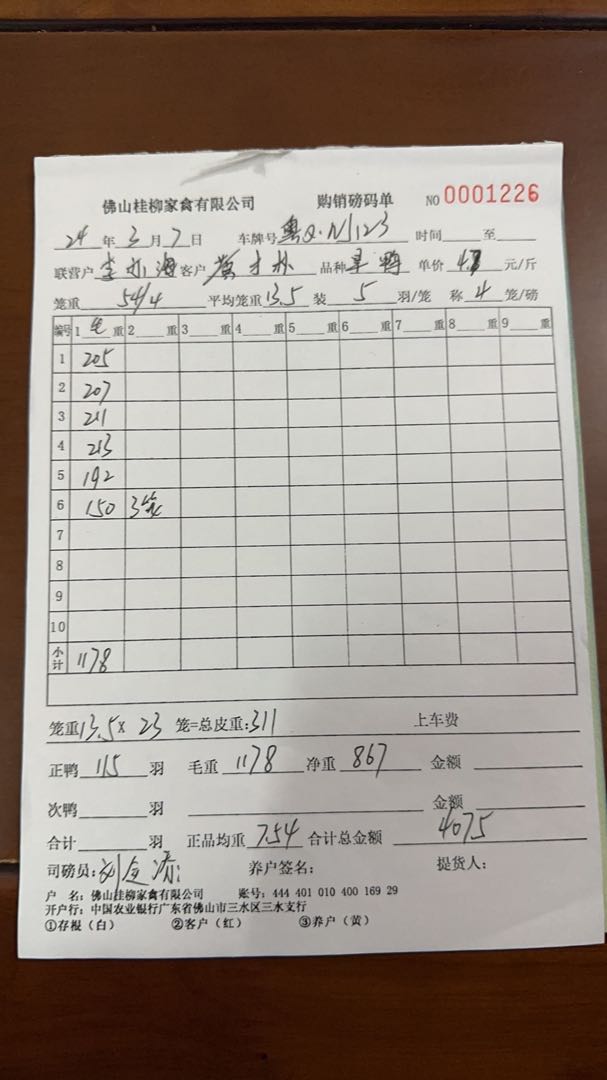 佛山桂柳家禽有限公司 购销磅码单 NO 0001226
24年3月7日 车牌号粤Q·NJ123 时间 至
联营户 客户 品种 单价4.7元/斤
笼重54/4 平均笼重13.5 装5羽/笼 称4笼/磅
编号 1毛重 2 重 3 重 4 重 5 重 6 重 7 重 8 重 9 重
1 205
2 207
3 211
4 213
5 192
6 150 3笼
7
8
9
10
小计 1178
笼重13.5×23 笼=总皮重:311 上车费
正鸭115羽 毛重1178 净重867 金额
次鸭 羽 金额
合计 羽 正品均重7.54 合计总金额4075
司磅员:刘金涛 养户签名: 提货人:
户 名:佛山桂柳家禽有限公司 账号:444 401 010 400 169 29
开户行:中国农业银行广东省佛山市三水区三水支行
①存根(白) ②客户(红) ③养户(黄)